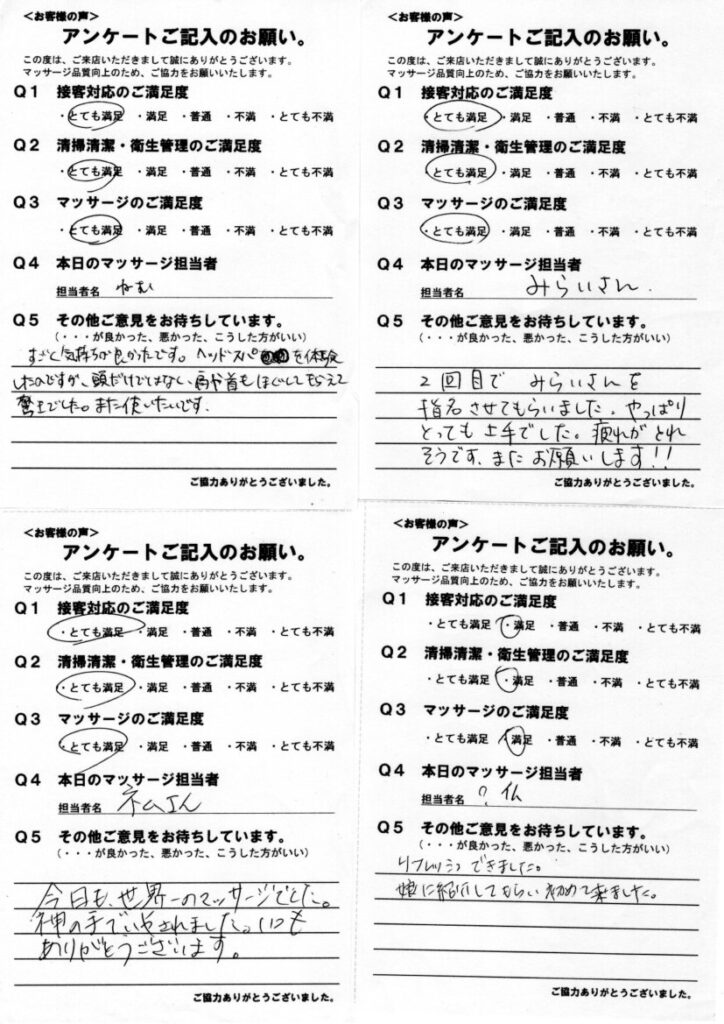 <お客様の声>
アンケートご記入のお願い。
この度は、ご来店いただきまして誠にありがとうございます。
マッサージ品質向上のため、ご協力をお願いいたします。
Q1 接客対応のご満足度
・とても満足 ・満足 ・普通 ・不満 ・とても不満
Q2 清掃清潔・衛生管理のご満足度
・とても満足 ・満足 ・普通 ・不満 ・とても不満
Q3 マッサージのご満足度
・とても満足 ・満足 ・普通 ・不満 ・とても不満
Q4 本日のマッサージ担当者
担当者名 ねむ
Q5 その他ご意見をお待ちしています。
(・・・が良かった、悪かった、こうした方がいい)
すごく気持ちが良かったです。ヘッドスパを体験
したのですが、頭だけではない、肩や首もほぐしてもらえて
でした。また使いたいです。
ご協力ありがとうございました。
<お客様の声>
アンケートご記入のお願い。
この度は、ご来店いただきまして誠にありがとうございます。
マッサージ品質向上のため、ご協力をお願いいたします。
Q1 接客対応のご満足度
・とても満足 ・満足 ・普通 ・不満 ・とても不満
Q2 清掃清潔・衛生管理のご満足度
・とても満足 ・満足 ・普通 ・不満 ・とても不満
Q3 マッサージのご満足度
・とても満足 ・満足 ・普通 ・不満 ・とても不満
Q4 本日のマッサージ担当者
担当者名 みらいさん.
Q5 その他ご意見をお待ちしています。
(・・・が良かった、悪かった、こうした方がいい)
2回目で みらいさんを
指名させてもらいました。やっぱり
とっても上手でした。疲れがとれ
そうです、またお願いします!!
ご協力ありがとうございました。
<お客様の声>
アンケートご記入のお願い。
この度は、ご来店いただきまして誠にありがとうございます。
マッサージ品質向上のため、ご協力をお願いいたします。
Q1 接客対応のご満足度
・とても満足 ・満足 ・普通 ・不満 ・とても不満
Q2 清掃清潔・衛生管理のご満足度
・とても満足 ・満足 ・普通 ・不満 ・とても不満
Q3 マッサージのご満足度
・とても満足 ・満足 ・普通 ・不満 ・とても不満
Q4 本日のマッサージ担当者
担当者名 ネムさん
Q5 その他ご意見をお待ちしています。
(・・・が良かった、悪かった、こうした方がいい)
今日も、世界一のマッサージでした。
神の手でいやされました。いつも
ありがとうございます。
ご協力ありがとうございました。
<お客様の声>
アンケートご記入のお願い。
この度は、ご来店いただきまして誠にありがとうございます。
マッサージ品質向上のため、ご協力をお願いいたします。
Q1 接客対応のご満足度
・とても満足 ・満足 ・普通 ・不満 ・とても不満
Q2 清掃清潔・衛生管理のご満足度
・とても満足 ・満足 ・普通 ・不満 ・とても不満
Q3 マッサージのご満足度
・とても満足 ・満足 ・普通 ・不満 ・とても不満
Q4 本日のマッサージ担当者
担当者名 ?
Q5 その他ご意見をお待ちしています。
(・・・が良かった、悪かった、こうした方がいい)
リフレッシュできました。
娘に紹介してもらい初めて来ました。
ご協力ありがとうございました。